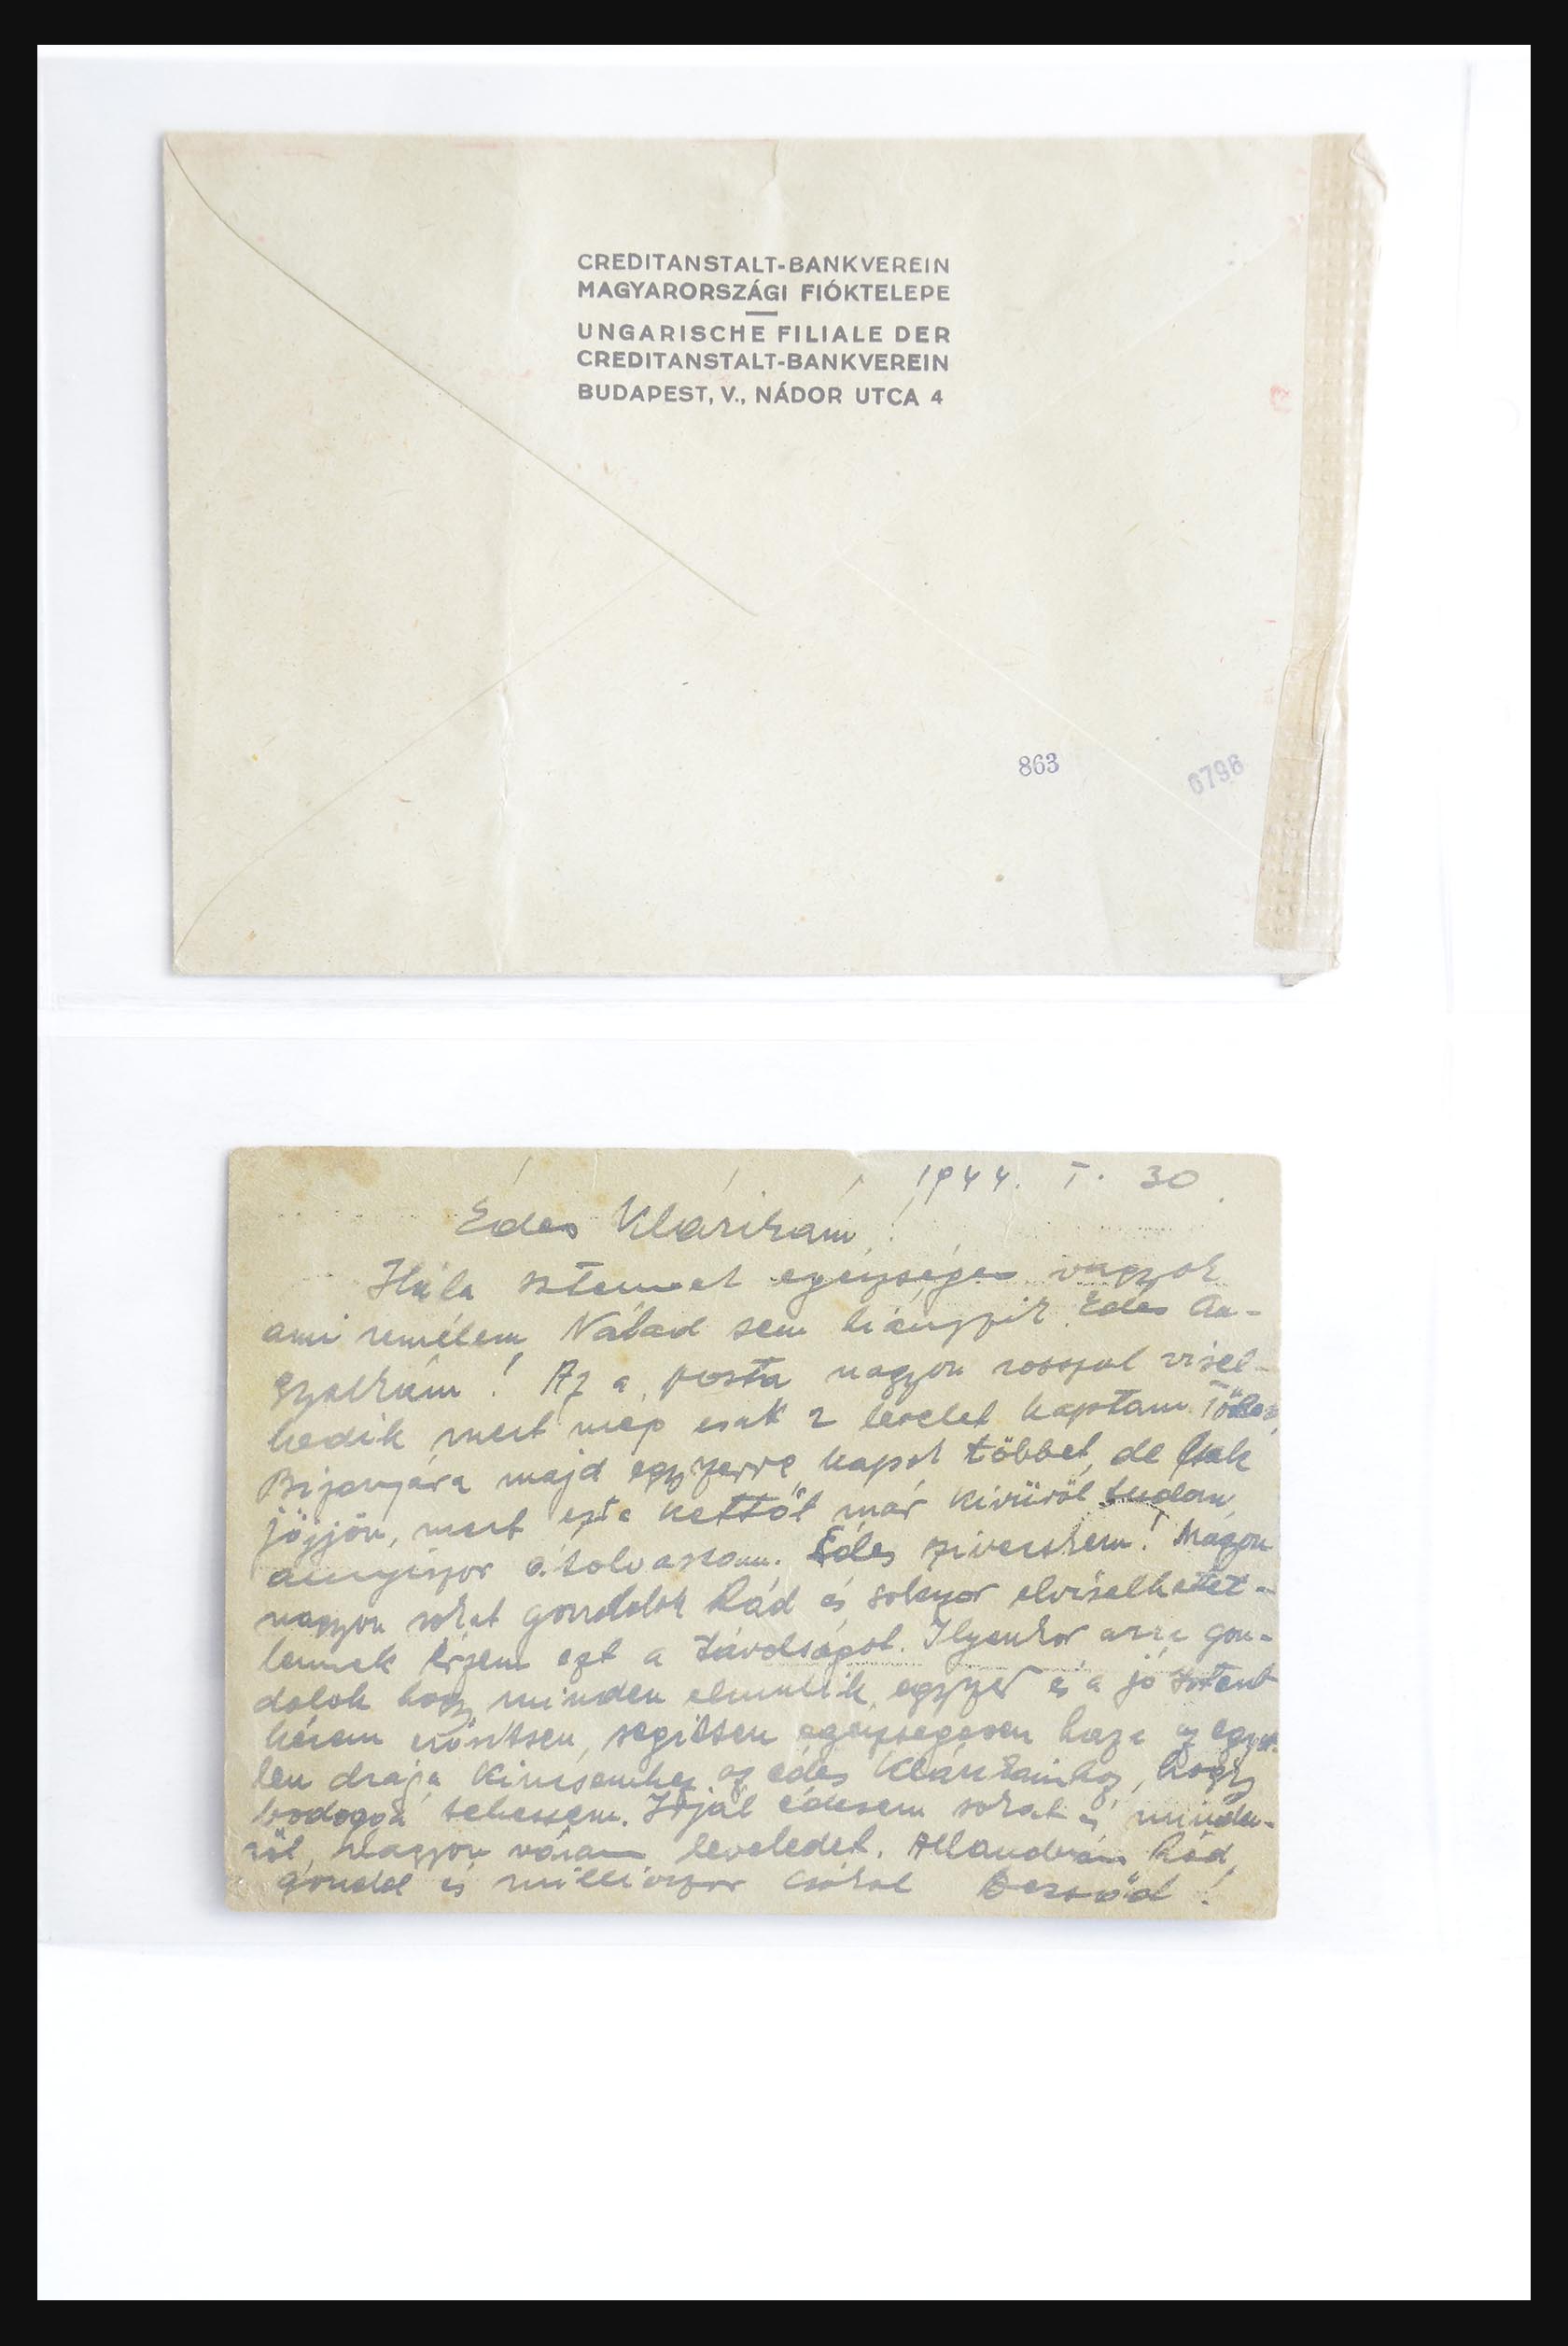 CREDITANSTALT-BANKVEREIN
MAGYARORSZÁGI FIÓKTELEPE
UNGARISCHE FILIALE DER
CREDITANSTALT-BANKVEREIN
BUDAPEST, V., NÁDOR UTCA 4
863
6798
1944. I. 30.
Édes Klárikám!
Hála Istennek egészséges vagyok
ami remélem Nálad sem hiányzik Édes An-
gyalkám! Az a posta nagyon rosszul visel-
kedik mert még csak 2 levelet kaptam Tőled,
Bizonyára majd egyszerre kapok többet, de csak
jöjjön, mert ezt a kettőt már kívüről tudom
annyiszor átolvasom. Édes szivecském! Nagyon
nagyon sokat gondolok Rád és sokszor elviselhetet-
lennek érzem ezt a távolságot. Ilyenkor arra gon-
dolok hogy minden elmulik egyszer és a jó Istent
kérem erősítsen, segítsen egészségesen haza az egyet-
len drága Kincsemhez az édes Klárikámhoz, hogy
bodoggá tehessem. Írjál édesem sokat és minden-
ről, Nagyon várom leveledet. Állandóan Rád
gondol és milliószor csókol